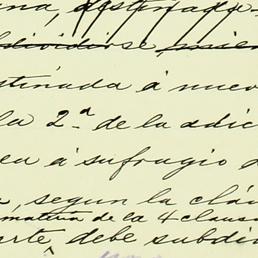 una, destinada
dividirse,
stinada á nuev
la 2.ª de la adic
ea á sufragio d
, segun la cláu
mativa de la 4 claus
arte, debe subdiv